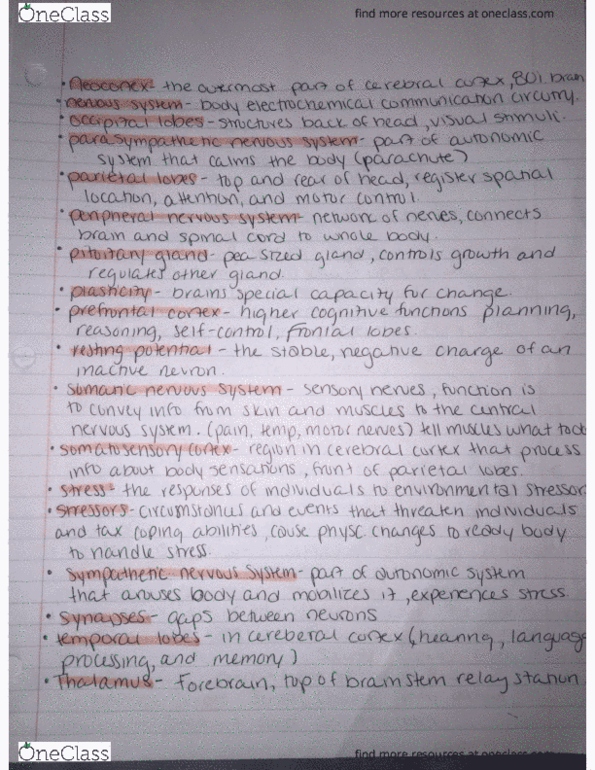 OneClass
find more resources at oneclass.com
• Neocortex - the outermost part of cerebral cortex, 80% brain
• nervous system - body electrochemical communication circutry.
• occipital lobes - structures back of head, visual stimuli.
• parasympathetic nervous system - part of autonomic
system that calms the body (parachute)
• parietal lobes - top and rear of head, register spatial
location, attention, and motor control.
• peripheral nervous system - network of nerves, connects
brain and spinal cord to whole body.
• pituitary gland - pea sized gland, controls growth and
regulates other gland.
• plasticity - brains special capacity for change.
• prefrontal cortex - higher cognitive functions planning,
reasoning, self-control, frontal lobes.
• resting potential - the stable, negative charge of an
inactive neuron.
• somatic nervous system - sensory nerves, function is
to convey info from skin and muscles to the central
nervous system. (pain, temp, motor nerves) tell muscles what to do
• somatosensory cortex - region in cerebral cortex that process
info about body sensations, front of parietal lobes.
• stress - the responses of individuals to environmental stressor
• stressors - circumstances and events that threaten individuals
and tax coping abilities, cause physc changes to ready body
to handle stress.
• sympathetic nervous system - part of autonomic system
that arouses body and mobilizes it, experiences stress.
• synapses - gaps between neurons
• temporal lobes - in cereberal cortex (hearing, language
processing, and memory)
• Thalamus - Forebrain, top of brain stem relay station
OneClass
find more resources at oneclass.com